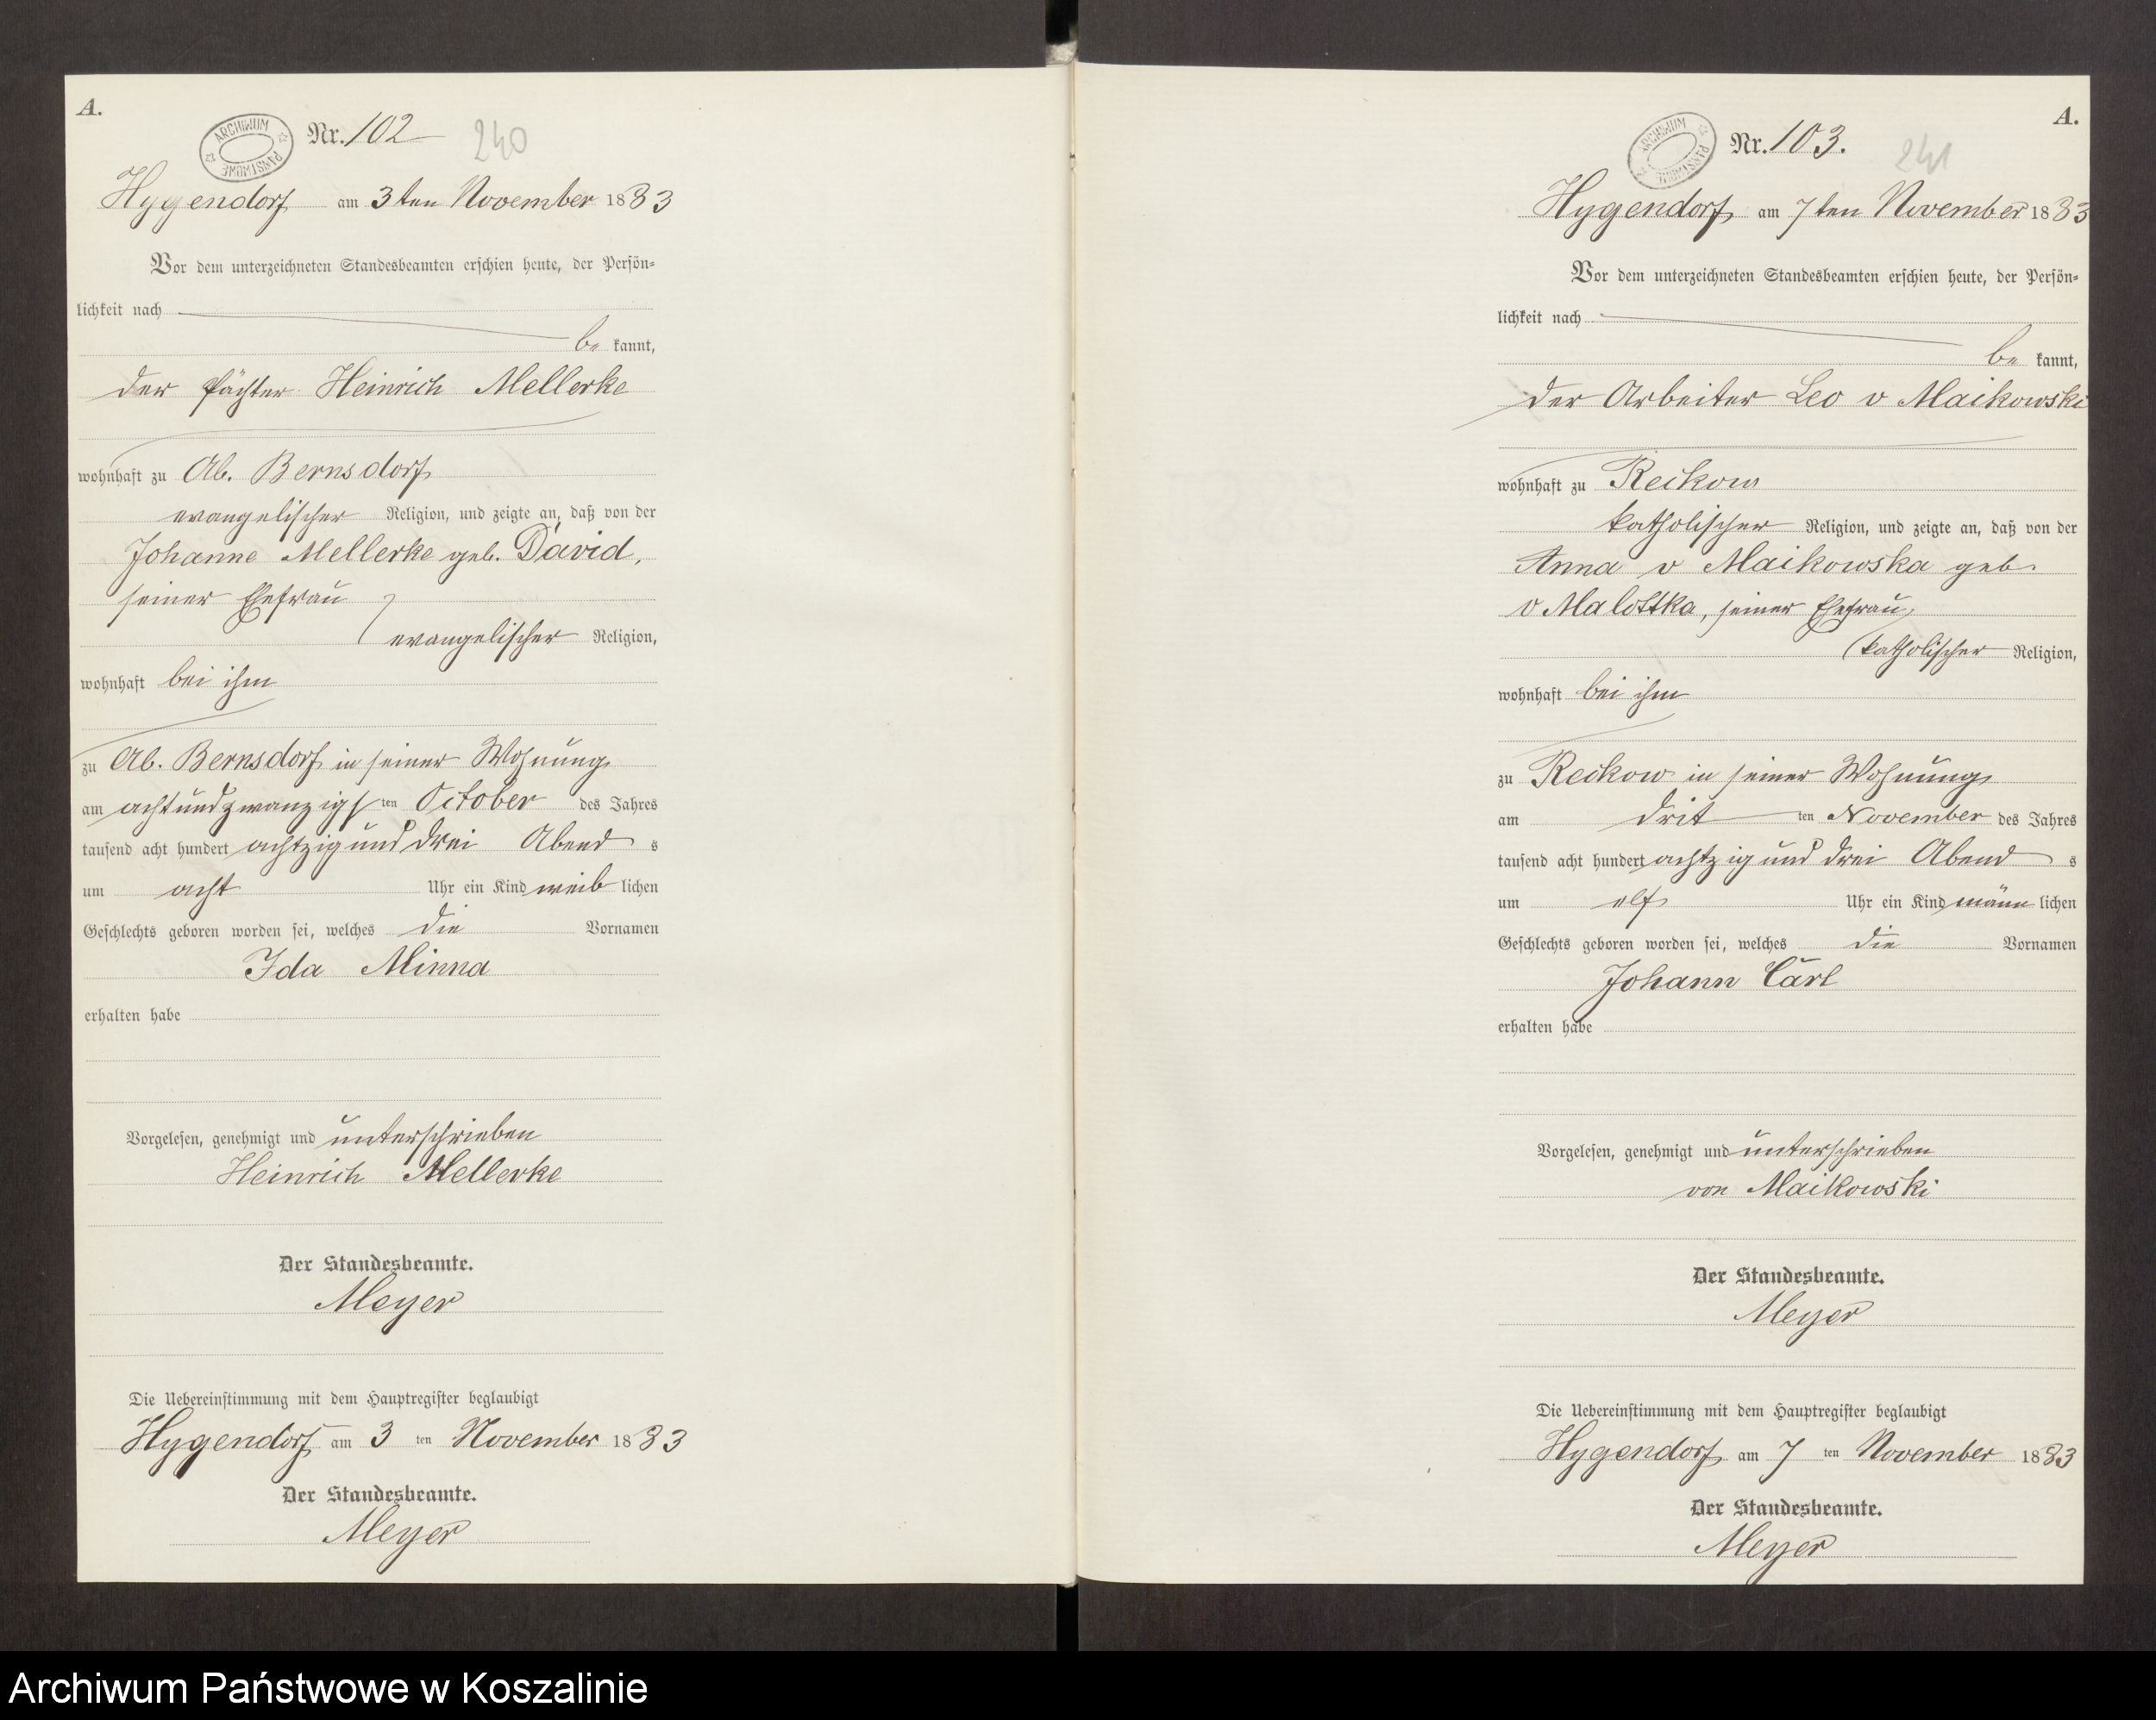 A.
ARCHIWUM PAŃSTWOWE
Nr. 102
240
Hygendorf am 3ten November 1883
Vor dem unterzeichneten Standesbeamten erschien heute, der Persön-
lichkeit nach
be kannt,
der Pächter Heinrich Mellerke
wohnhaft zu Ab. Bernsdorf
evangelischer Religion, und zeigte an, daß von der
Johanne Mellerke geb. David,
seiner Ehefrau
evangelischer Religion,
wohnhaft bei ihm
zu Ab. Bernsdorf in seiner Wohnung
am achtundzwanzigs ten October des Jahres
tausend acht hundert achtzig und drei Abend s
um acht Uhr ein Kind weib lichen
Geschlechts geboren worden sei, welches die Vornamen
Ida Minna
erhalten habe
Vorgelesen, genehmigt und unterschrieben
Heinrich Mellerke
Der Standesbeamte.
Meyer
Die Uebereinstimmung mit dem Hauptregister beglaubigt
Hygendorf am 3 ten November 1883
Der Standesbeamte.
Meyer
A.
ARCHIWUM PAŃSTWOWE
Nr. 103.
241
Hygendorf am 7ten November 1883
Vor dem unterzeichneten Standesbeamten erschien heute, der Persön-
lichkeit nach
be kannt,
der Arbeiter Leo v Maikowski
wohnhaft zu Reckow
katholischer Religion, und zeigte an, daß von der
Anna v Maikowska geb.
v Malottka, seiner Ehefrau
katholischer Religion,
wohnhaft bei ihm
zu Reckow in seiner Wohnung
am drit ten November des Jahres
tausend acht hundert achtzig und drei Abend s
um elf Uhr ein Kind männ lichen
Geschlechts geboren worden sei, welches die Vornamen
Johann Carl
erhalten habe
Vorgelesen, genehmigt und unterschrieben
von Maikowski
Der Standesbeamte.
Meyer
Die Uebereinstimmung mit dem Hauptregister beglaubigt
Hygendorf am 7 ten November 1883
Der Standesbeamte.
Meyer
Archiwum Państwowe w Koszalinie